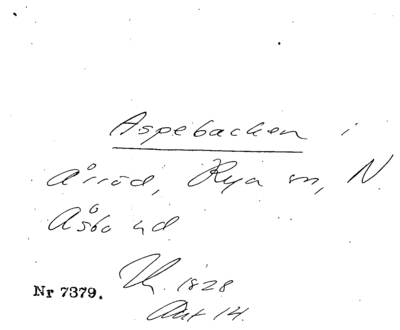 Aspebacken i
Årröd, Rya sn, N.
Åsbo hd
Nr 7379.
1828
Akt 14.